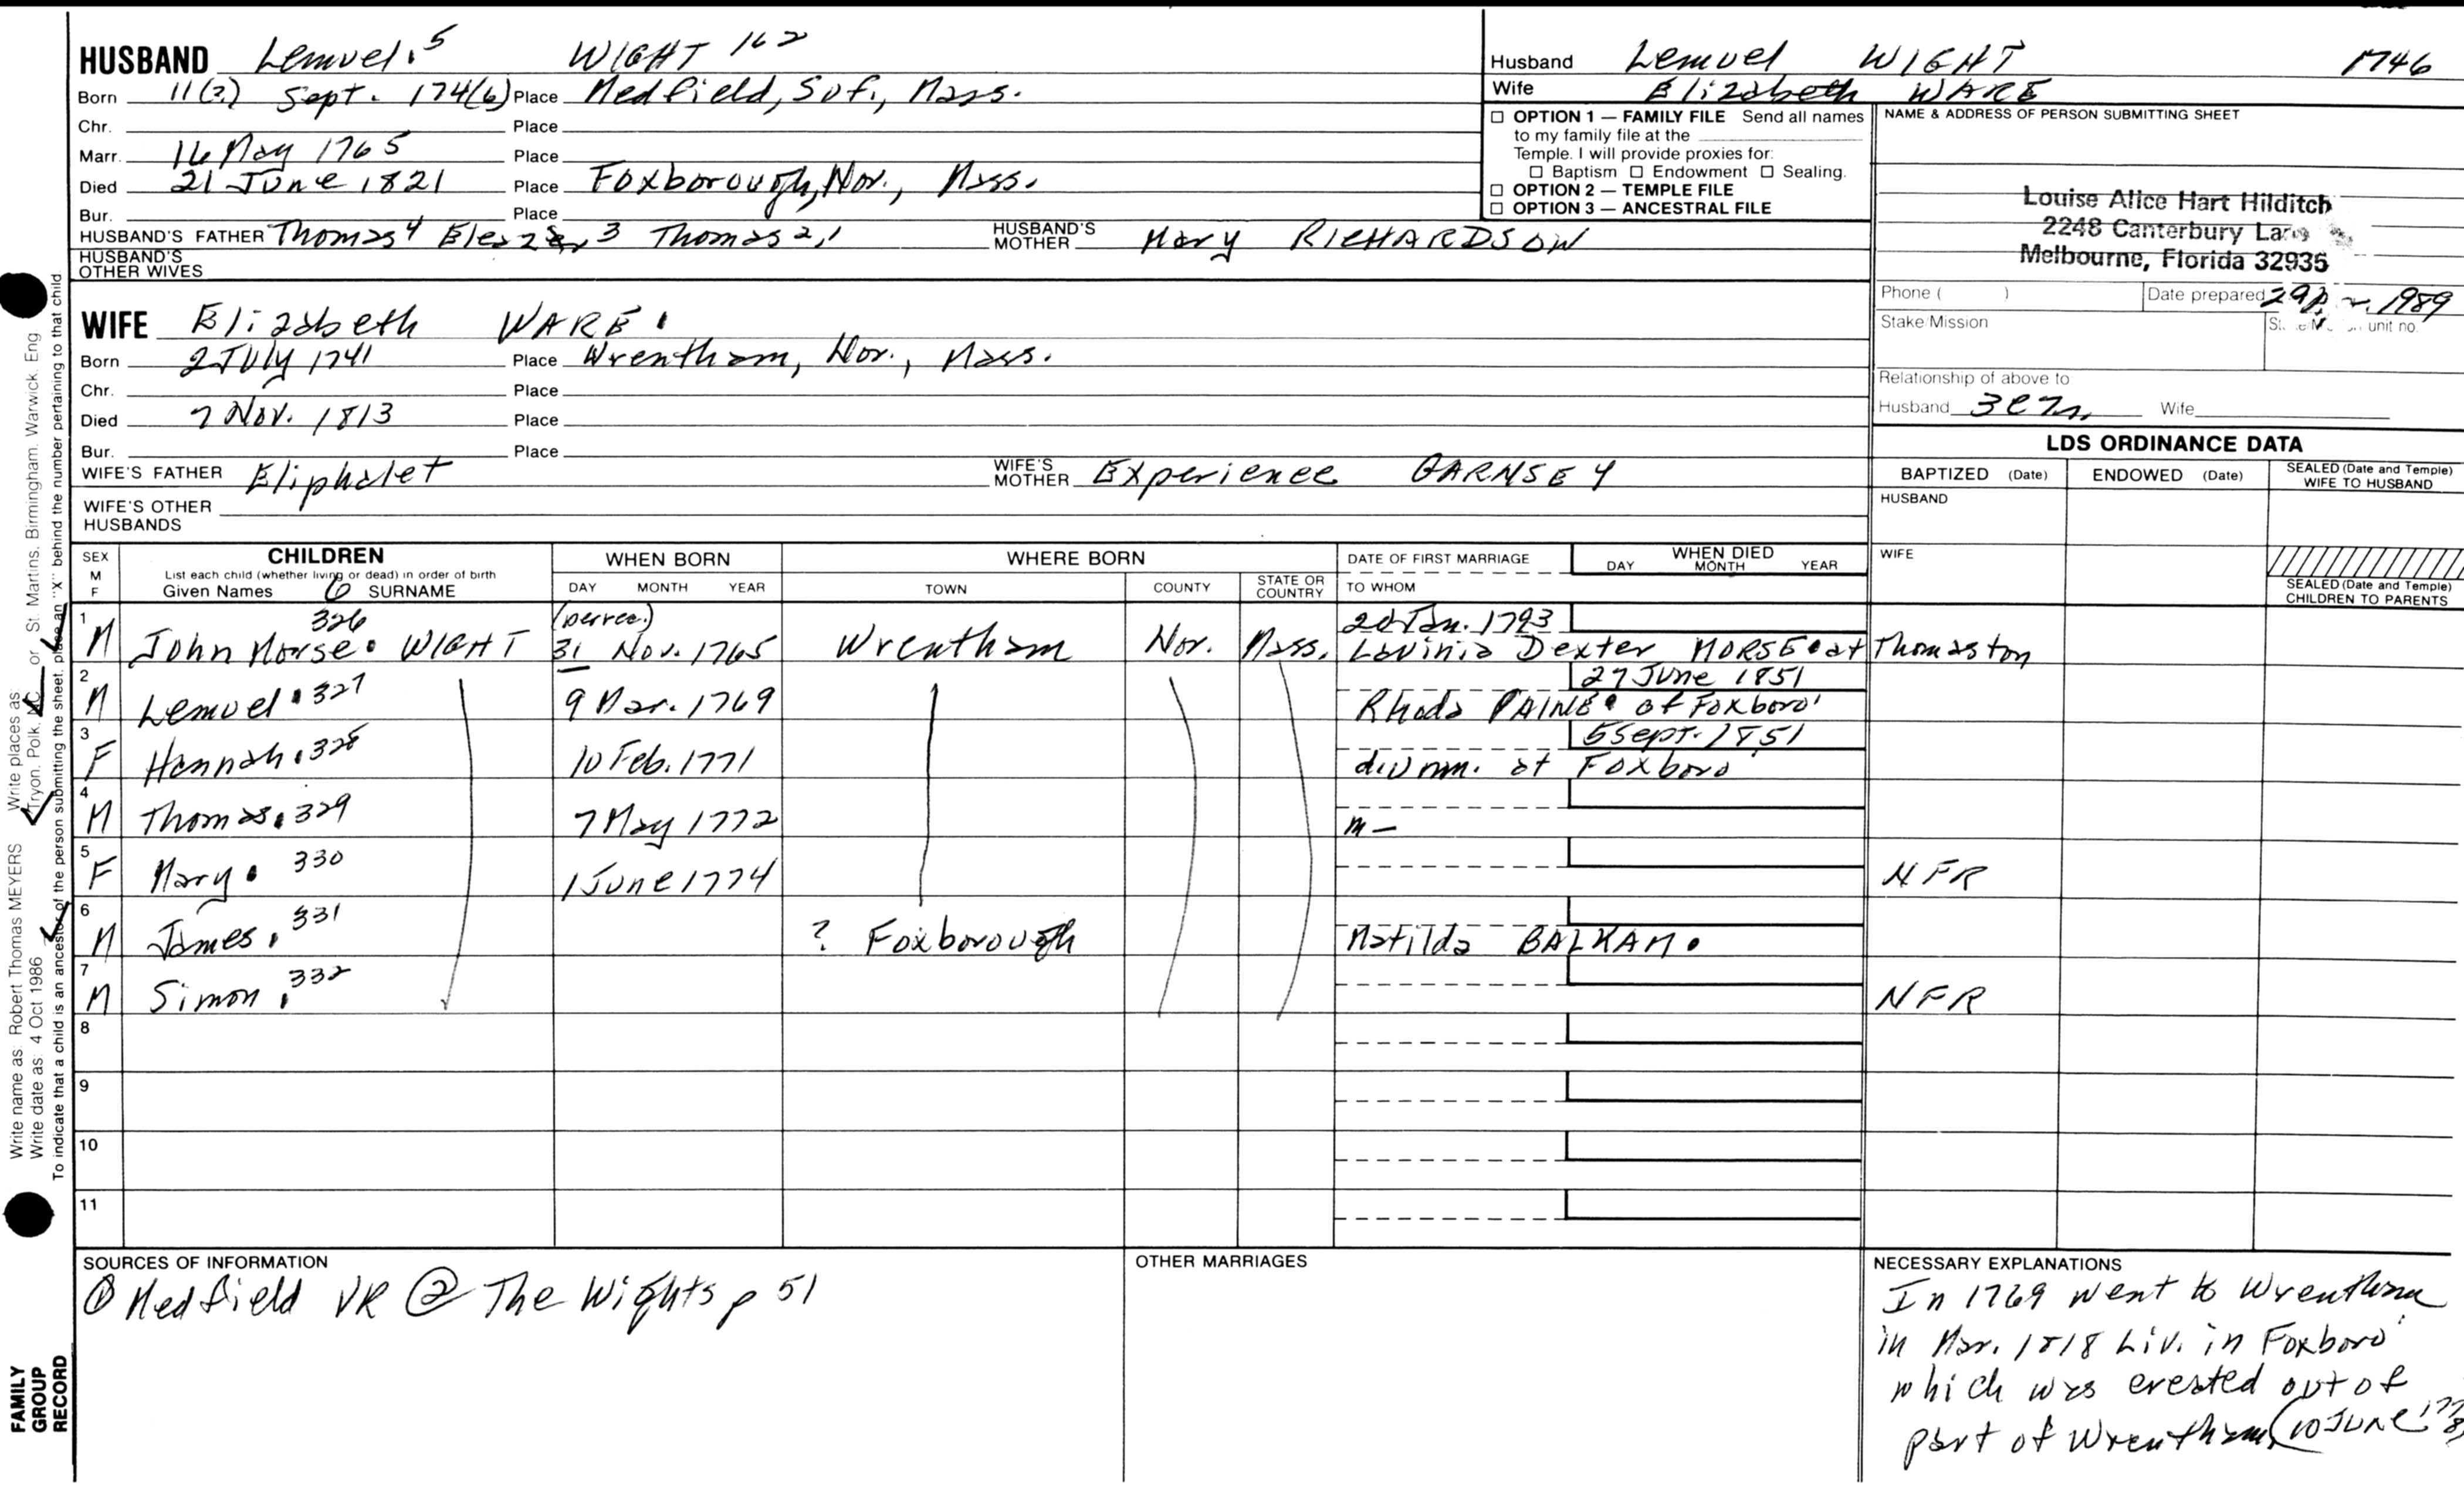 HUSBAND Lemuel.5 WIGHT 162
Born 11(?) Sept. 174(6) Place Medfield, Suf., Mass.
Chr. Place
Marr. 16 May 1765 Place
Died 21 June 1821 Place Foxborough, Nor., Mass.
Bur. Place
HUSBAND'S FATHER Thomas4 Eleazer3 Thomas2,1 HUSBAND'S MOTHER Mary RICHARDSON
HUSBAND'S OTHER WIVES
Husband Lemuel WIGHT 1746
Wife Elizabeth WARE
☐ OPTION 1 — FAMILY FILE Send all names
to my family file at the
Temple. I will provide proxies for:
☐ Baptism ☐ Endowment ☐ Sealing.
☐ OPTION 2 — TEMPLE FILE
☐ OPTION 3 — ANCESTRAL FILE
NAME & ADDRESS OF PERSON SUBMITTING SHEET
Louise Alice Hart Hilditch
2248 Canterbury Lane
Melbourne, Florida 32935
Phone ( ) Date prepared 1989
Stake/Mission unit no.
Relationship of above to
Husband Wife
WIFE Elizabeth WARE.
Born 2 July 1741 Place Wrentham, Nor., Mass.
Chr. Place
Died 7 Nov. 1813 Place
Bur. Place
WIFE'S FATHER Eliphalet WIFE'S MOTHER Experience GARNSEY
WIFE'S OTHER HUSBANDS
LDS ORDINANCE DATA
BAPTIZED (Date) ENDOWED (Date) SEALED (Date and Temple) WIFE TO HUSBAND
HUSBAND
WIFE
SEALED (Date and Temple) CHILDREN TO PARENTS
SEX M F CHILDREN List each child (whether living or dead) in order of birth Given Names 6 SURNAME
WHEN BORN DAY MONTH YEAR
WHERE BORN TOWN COUNTY STATE OR COUNTRY
DATE OF FIRST MARRIAGE TO WHOM
WHEN DIED DAY MONTH YEAR
1 M John Morse. 326 WIGHT 31 Nov. 1765 Wrentham Nor. Mass. 20 Jan. 1793
Lavinia Dexter MORSE. at Thomaston
2 M Lemuel. 327 9 Mar. 1769 27 June 1851
Rhoda PAINE. of Foxboro'
3 F Hannah. 328 10 Feb. 1771 5 Sept. 1851
d. unm. at Foxboro'
4 M Thomas. 329 7 May 1772 m—
5 F Mary. 330 1 June 1774 NFR
6 M James. 331 ? Foxborough Matilda BALKAM.
7 M Simon. 332 NFR
8
9
10
11
SOURCES OF INFORMATION
① Medfield VR ② The Wights p 51
OTHER MARRIAGES
NECESSARY EXPLANATIONS
In 1769 went to Wrentham
in Mar. 1818 Liv. in Foxboro'
which was erected out of
part of Wrentham (10 June 1778)
FAMILY
GROUP
RECORD
Write name as: Robert Thomas MEYERS Write places as
Write date as: 4 Oct 1986 Tryon, Polk, NC or St. Martins, Birmingham, Warwick, Eng
To indicate that a child is an ancestor of the person submitting the sheet, place an "X" behind the number pertaining to that child